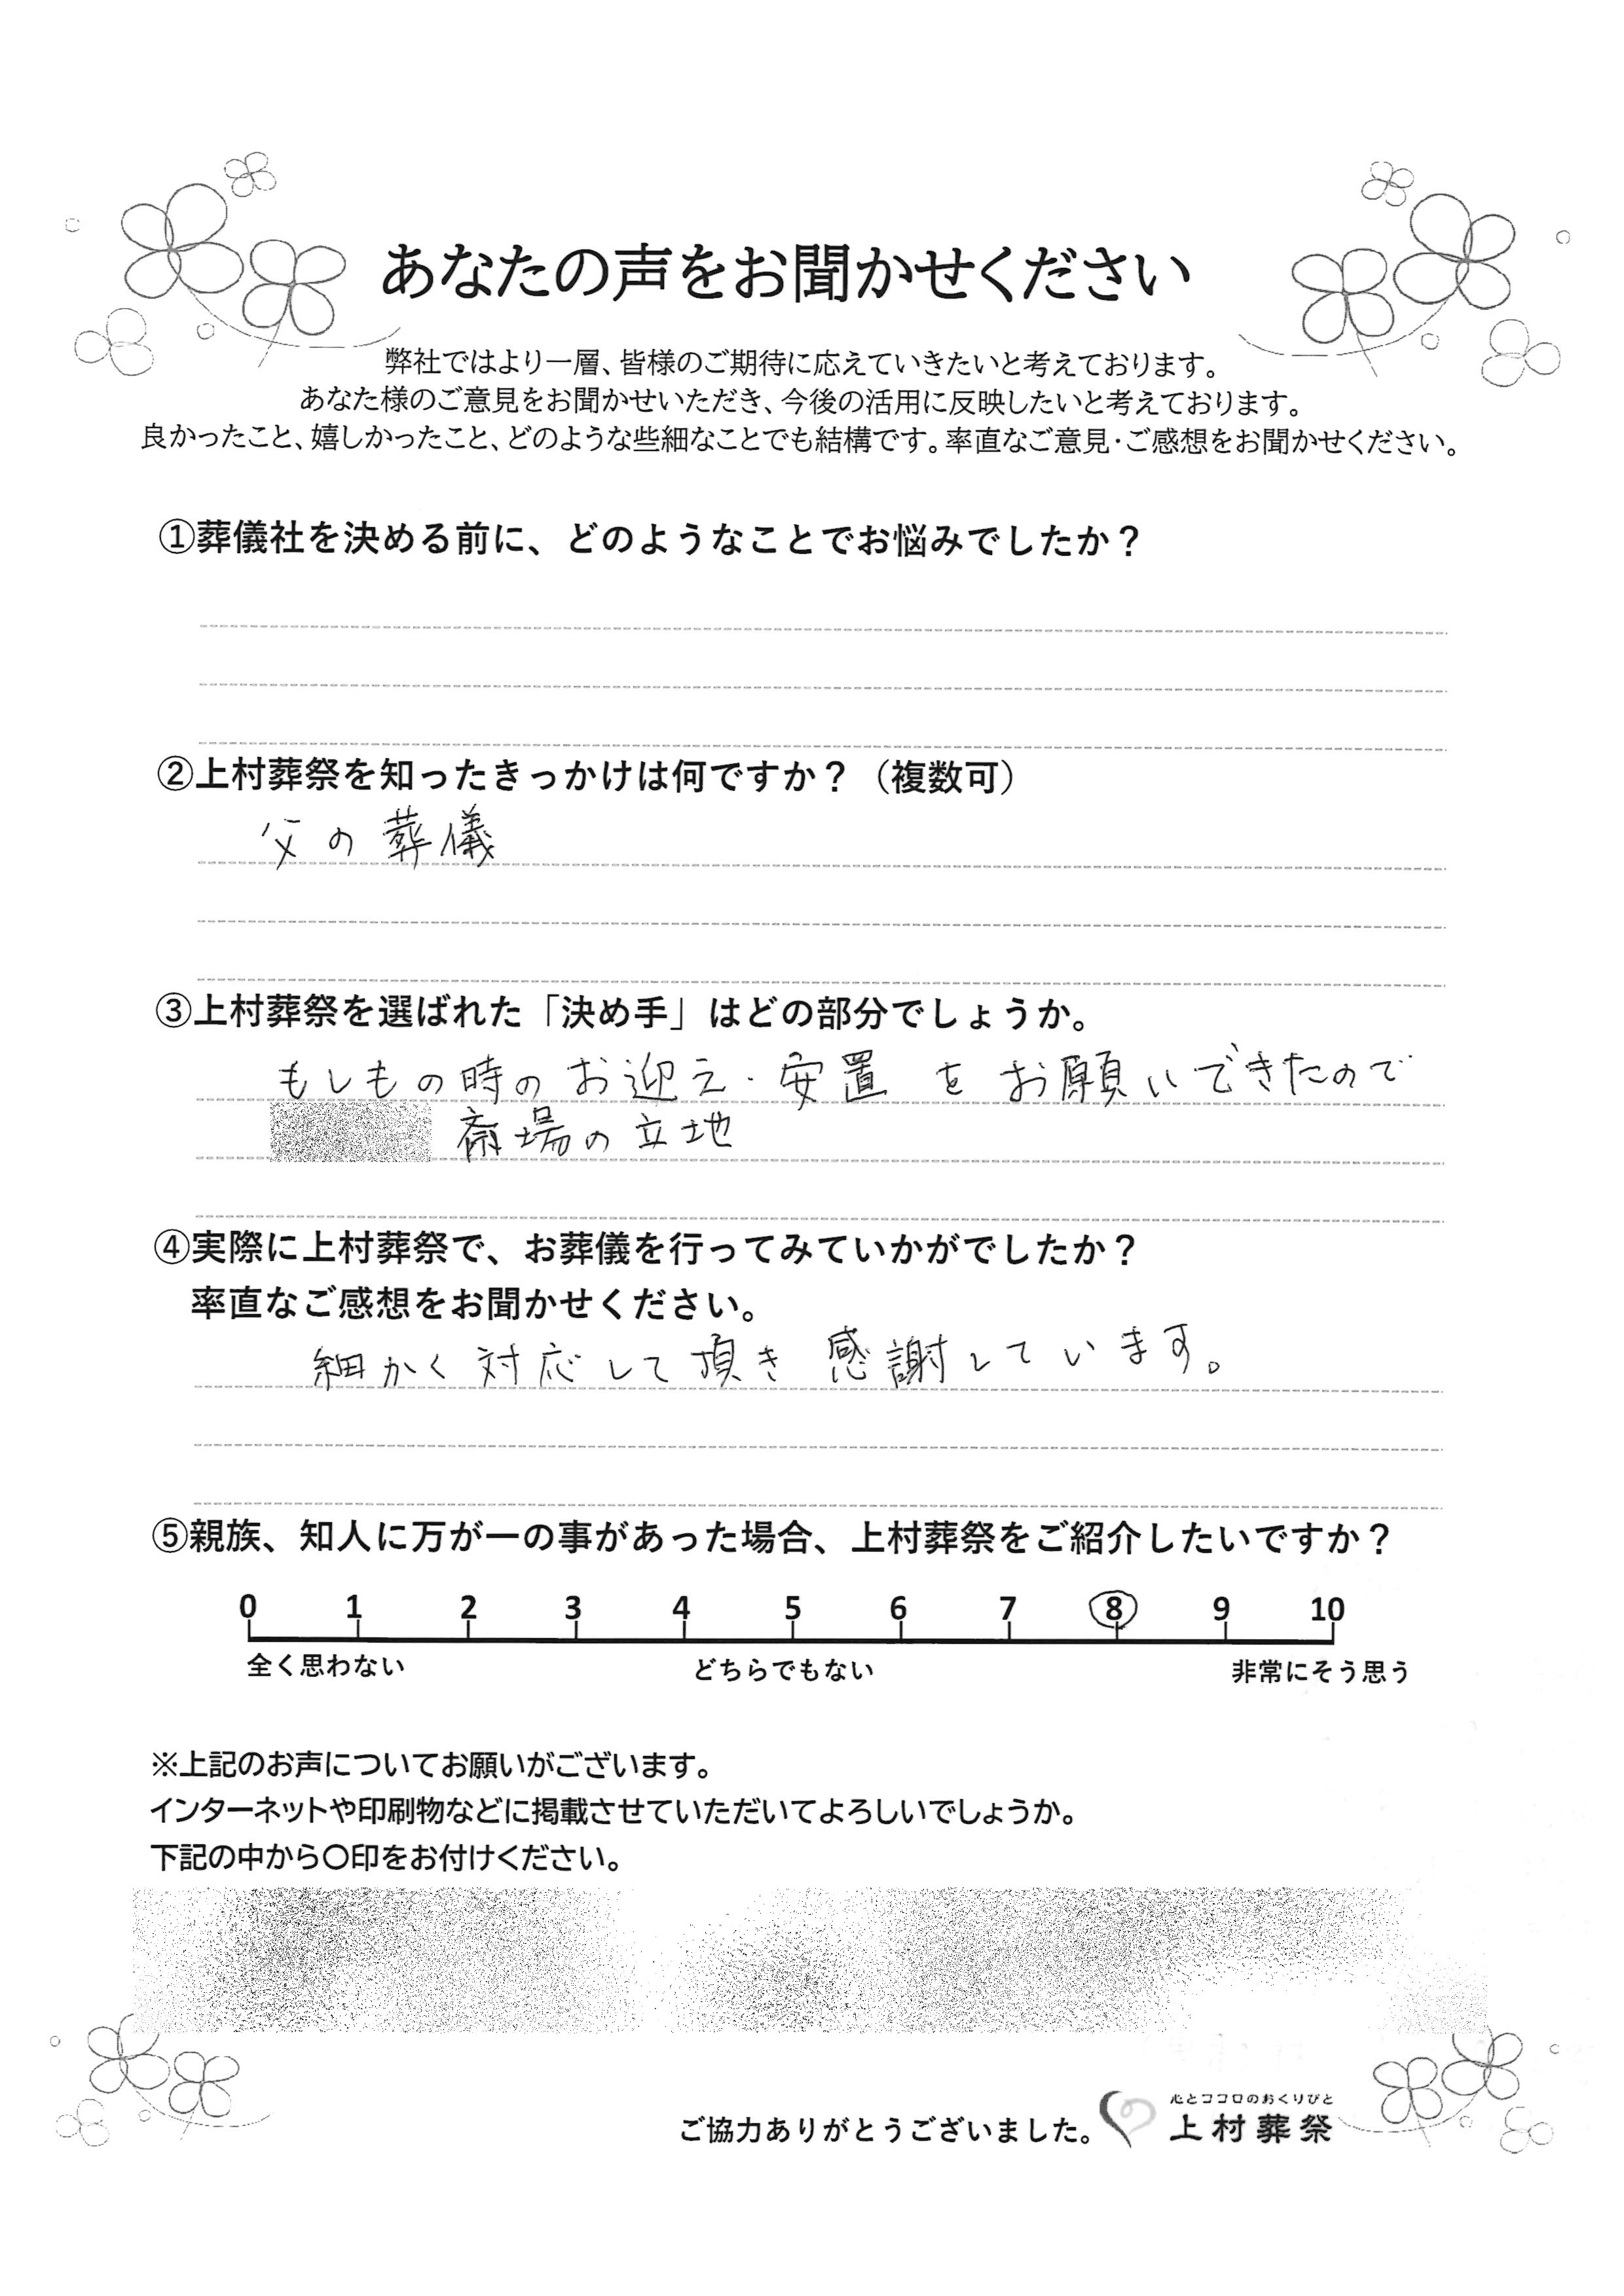 あなたの声をお聞かせください
弊社ではより一層、皆様のご期待に応えていきたいと考えております。
あなた様のご意見をお聞かせいただき、今後の活用に反映したいと考えております。
良かったこと、嬉しかったこと、どのような些細なことでも結構です。率直なご意見・ご感想をお聞かせください。
①葬儀社を決める前に、どのようなことでお悩みでしたか？
②上村葬祭を知ったきっかけは何ですか？（複数可）
父の葬儀
③上村葬祭を選ばれた「決め手」はどの部分でしょうか。
もしもの時のお迎え・安置をお願いできたので
斎場の立地
④実際に上村葬祭で、お葬儀を行ってみていかがでしたか？
率直なご感想をお聞かせください。
細かく対応して頂き感謝しています。
⑤親族、知人に万が一の事があった場合、上村葬祭をご紹介したいですか？
0 1 2 3 4 5 6 7 8 9 10
全く思わない どちらでもない 非常にそう思う
※上記のお声についてお願いがございます。
インターネットや印刷物などに掲載させていただいてよろしいでしょうか。
下記の中から〇印をお付けください。
心とココロのおくりびと
ご協力ありがとうございました。 上村葬祭